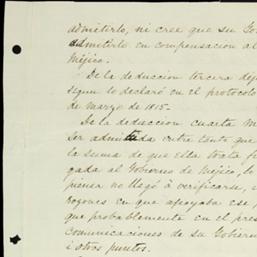 admitirlo, ni cree que su Go
admitirlo en compensacion al
Méjico.
De la deduccion tercera dej
segun lo declaró en el protocolo
de marzo de 1815.
De la deduccion cuarta M
ser admitida entre tanto que
la suma de que esta trata f
gada al Gobierno de Méjico, lo
piensa no llegó á verificarse,
razones en que apoyaba ese
que probablemente en el pres
comunicaciones de su Gobier
i otros puntos.